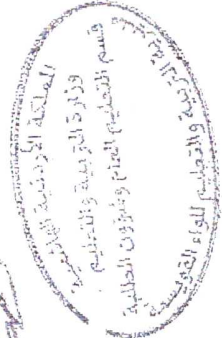 المملكة الأردنية الهاشمية
وزارة التربية والتعليم
قسم التعليم العام وشؤون الطلبة
التربية والتعليم للواء القويسمة